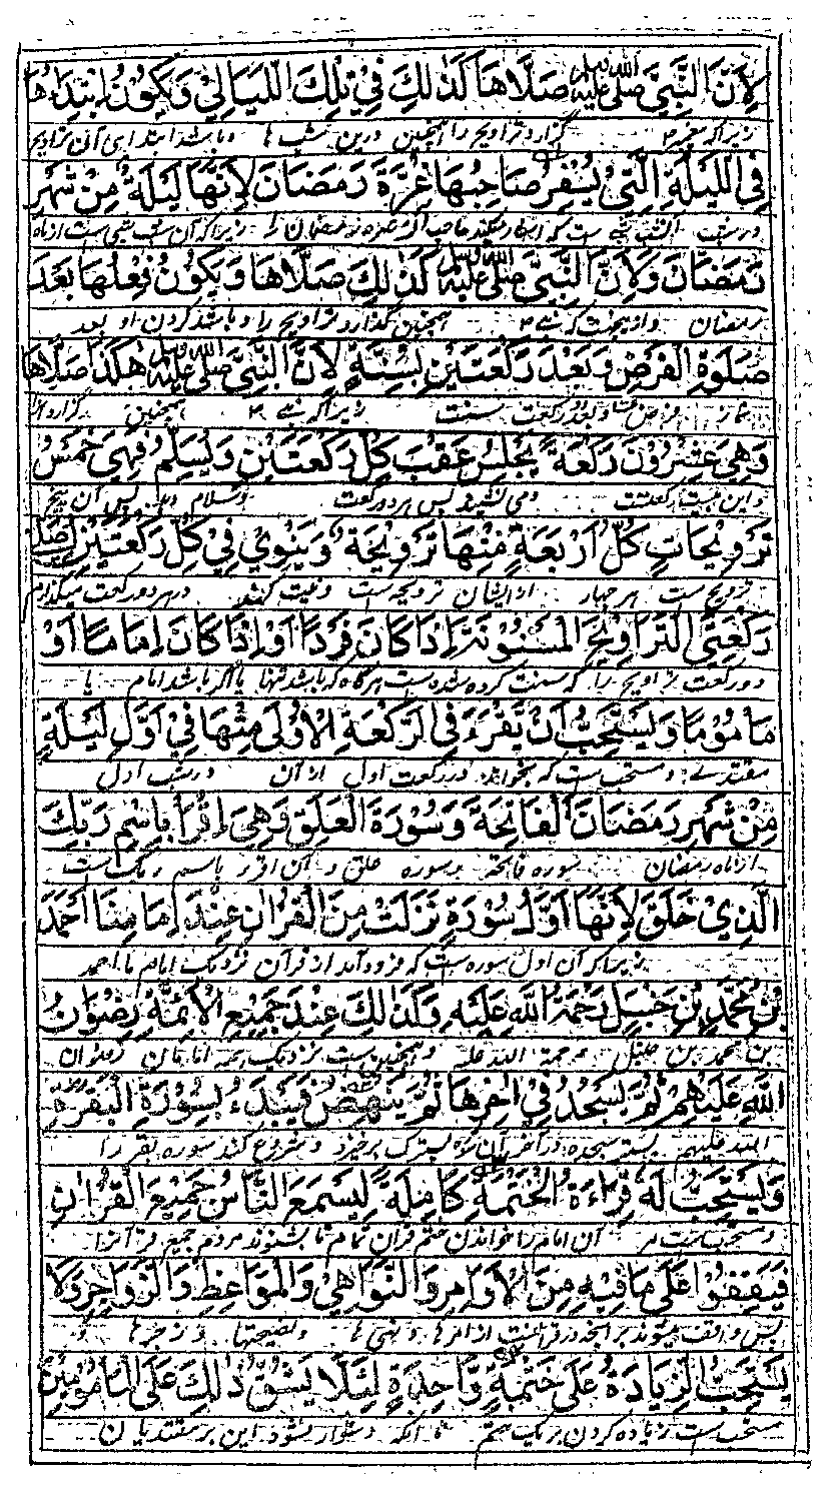 لِاَنَّ النَّبِيَّ صلى الله عليه وسلم صَلَّاهَا كَذٰلِكَ فِيْ تِلْكَ اللَّيَالِيْ وَيَكُوْنُ اِبْتِدَاءُهَا
زیرا که پیغمبر گزارد تراویح را همچنین درین شب ها و باشد ابتدای آن تراویح
فِي اللَّيْلَةِ الَّتِيْ يُسْفِرُ صَاحِبُهَا غُرَّةَ رَمَضَانَ لِاَنَّهَا لَيْلَةٌ مِنْ شَهْرِ
رمضان را زیرا که آن شب شبی است از ماه
رَمَضَانَ وَلِاَنَّ النَّبِيَّ صلى الله عليه وسلم كَذٰلِكَ صَلَّاهَا وَيَكُوْنُ فِعْلُهَا بَعْدَ
رمضان و از بهشت که نبی همچنین گذارد تراویح را و باشد کردن او بعد
صَلٰوةِ الْفَرْضِ وَبَعْدَ رَكْعَتَيْنِ بِسُنَّةٍ لِاَنَّ النَّبِيَّ صلى الله عليه وسلم هٰكَذَا صَلَّاهَا
نماز فرض و بعد دو رکعت سنت زیرا که نبی همچنین گزارد
وَهِيَ عِشْرُوْنَ رَكْعَةً يَجْلِسُ عَقْبَ كُلِّ رَكْعَتَيْنِ وَيُسَلِّمُ فَهِيَ خَمْسُ
و این بیست رکعتست و می نشیند پس هر دو رکعت و سلام دهد پس آن پنج
تَرْوِيْحَاتٍ كُلُّ اَرْبَعَةٍ مِنْهَا تَرْوِيْحَةٌ وَيَنْوِيْ فِيْ كُلِّ رَكْعَتَيْنِ اُصَلِّيْ
ترویح است هر چهار ازایشان ترویحه است و نیت کند در هر دو رکعت میگذارم
رَكْعَتَيِ التَّرَاوِيْحِ الْمَسْنُوْنَةِ اِذَا كَانَ فَرْدًا اَوْ اِذَا كَانَ اِمَامًا اَوْ
دو رکعت تراویح را که سنت کرده شده است هرگاه که باشد تنها یا اگر باشد امام یا
مَأْمُوْمًا وَيَسْتَحِبُّ اَنْ يَّقْرَءَ فِي الرَّكْعَةِ الْاُوْلٰى مِنْهَا فِيْ اَوَّلِ لَيْلَةٍ
مقتدی و مستحب است که بخواند در رکعت اول از آن در شب اول
مِنْ شَهْرِ رَمَضَانَ الْفَاتِحَةَ وَسُوْرَةَ الْعَلَقِ وَهِيَ اِقْرَأْ بِاسْمِ رَبِّكَ
از ماه رمضان سوره فاتحه و سوره علق و آن اقرء باسم ربک است
الَّذِيْ خَلَقَ لِاَنَّهَا اَوَّلُ سُوْرَةٍ نَزَلَتْ مِنَ الْقُرْاٰنِ عِنْدَ اِمَامِنَا اَحْمَدَ
زیرا که آن اول سوره است که فرود آمد از قرآن نزدیک امام ما احمد
بْنِ مُحَمَّدِ بْنِ حَنْبَلٍ رَحْمَةُ اللّٰهِ عَلَيْهِ وَكَذٰلِكَ عِنْدَ جَمِيْعِ الْاَئِمَّةِ رِضْوَانُ
بن محمد بن حنبل رحمة الله علیه و همچنین است نزدیک همه امامان رضوان
اللّٰهِ عَلَيْهِمْ ثُمَّ يَسْجُدُ فِيْ اٰخِرِهَا ثُمَّ يَنْهَضُ فَيَبْدَءُ بِسُوْرَةِ الْبَقَرَةِ
الله علیهم پستر سجده در آخر آن سوره پستر برخیزد و شروع کند سوره بقر را
وَيَسْتَحِبُّ لَهٗ قِرَاءَةُ الْخَتْمَةِ كَامِلَةً لِيَسْمَعَ النَّاسُ جَمِيْعَ الْقُرْاٰنِ
و مستحب است مر آن امام را خواندن ختم قرآن تمام تا بشنوند مردم جمیع قرآنرا
فَيَقِفُوْا عَلٰى مَا فِيْهِ مِنَ الْاَوَامِرِ وَالنَّوَاهِيْ وَالْمَوَاعِظِ وَالزَّوَاجِرِ وَلَا
پس واقف میشوند بر آنچه در قرآنست از امرها و نهی ها و نصیحتها و زجرها و نه
يَسْتَحِبُّ الزِّيَادَةُ عَلٰى خَتْمَةٍ وَّاحِدَةٍ لِئَلَّا يَشُقَّ ذٰلِكَ عَلَى الْمَأْمُوْمِيْنَ
مستحب است زیاده کردن بر یک ختم تا آنکه دشوار نشود این بر مقتدیان